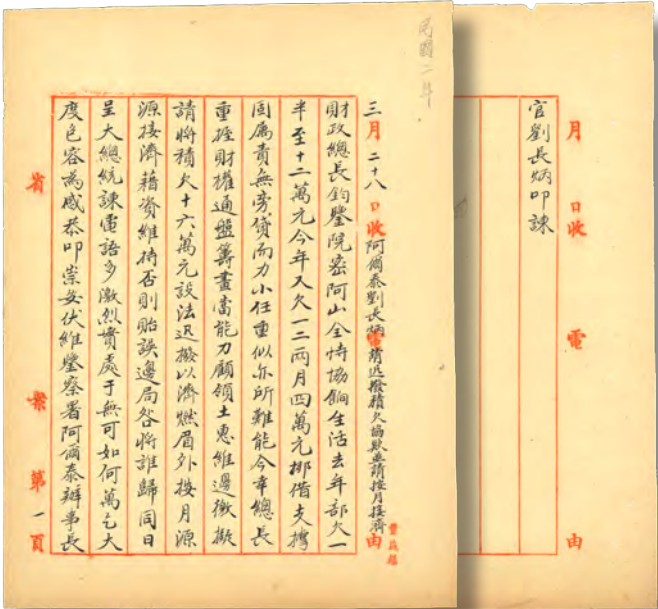 民國二年
三月二十八日收阿爾泰劉長炳電請迅撥積欠協款並請按月接濟由
財政總長鈞鑒院密阿山全恃協餉生活去年部欠一
半至十二萬元今年又欠一二兩月四萬元挪借支撐
固屬責無旁貸而力小任重似亦所難能今幸總長
重握財權通盤籌畫當能力顧領土惠維邊徼擬
請將積欠十六萬元設法迅撥以濟燃眉外按月源
源接濟藉資維持否則貽誤邊局咎將誰歸同日
呈大總統諫電語多激烈實處于無可如何萬乞大
度包容為感恭叩崇安伏維鑒察署阿爾泰辦事長
省 第一頁
月 日收 電 由
官劉長炳叩諫